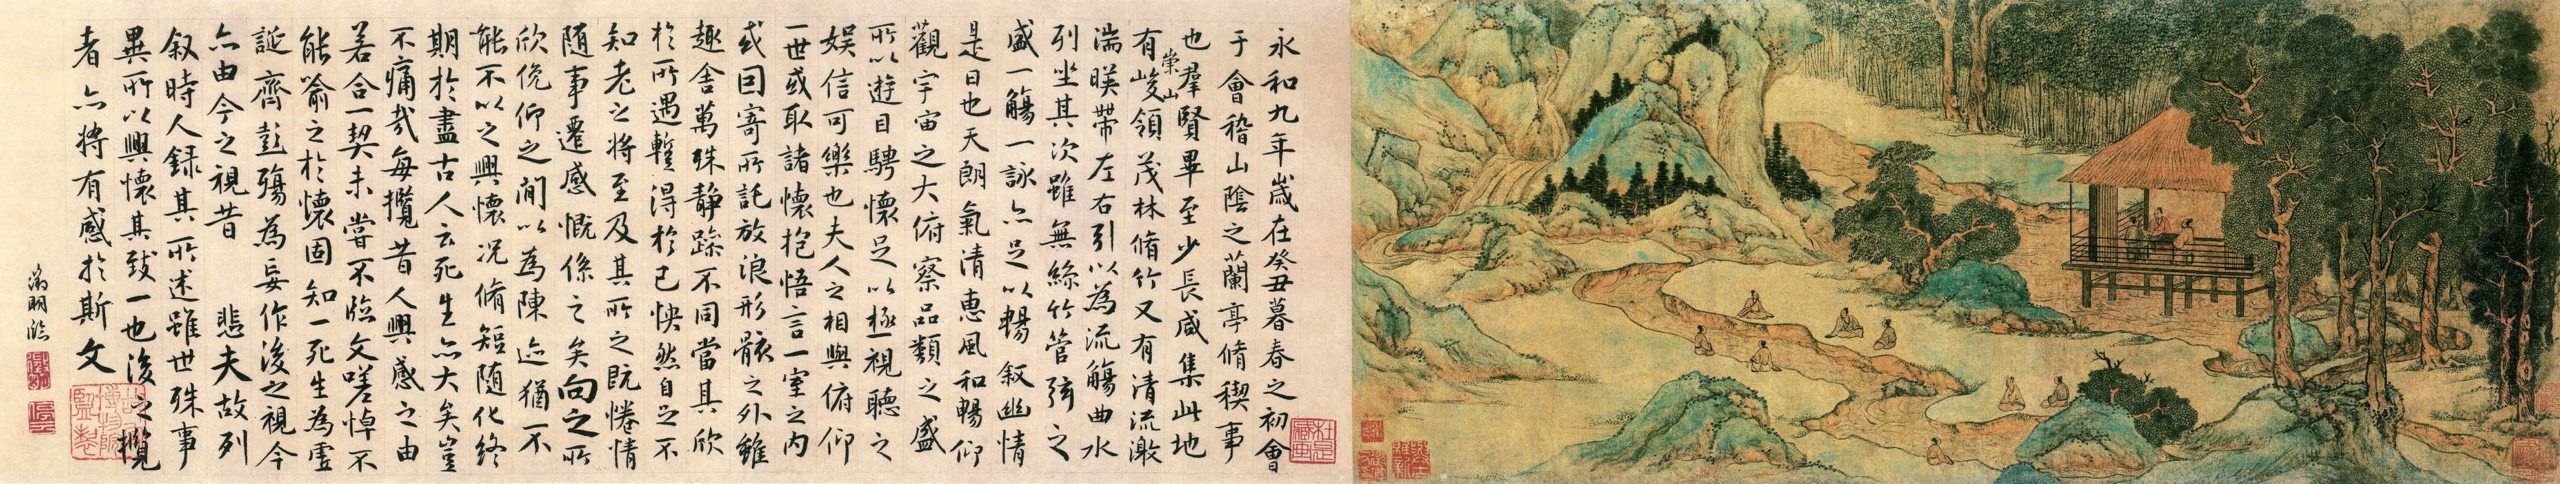 永和九年歲在癸丑暮春之初會
于會稽山陰之蘭亭脩稧事
也羣賢畢至少長咸集此地
有崇山峻領茂林脩竹又有清流激
湍暎帶左右引以為流觴曲水
列坐其次雖無絲竹管弦之
盛一觴一詠亦足以暢叙幽情
是日也天朗氣清惠風和暢仰
觀宇宙之大俯察品類之盛
所以遊目騁懷足以極視聽之
娛信可樂也夫人之相與俯仰
一世或取諸懷抱悟言一室之內
或因寄所託放浪形骸之外雖
趣舍萬殊静躁不同當其欣
於所遇蹔得於己怏然自足不
知老之將至及其所之既惓情
随事遷感慨係之矣向之所
欣俛仰之閒以為陳迹猶不
能不以之興懷況脩短随化終
期於盡古人云死生亦大矣豈
不痛哉每攬昔人興感之由
若合一契未嘗不臨文嗟悼不
能喻之於懷固知一死生為虛
誕齊彭殤為妄作後之視今
亦由今之視昔悲夫故列
叙時人録其所述雖世殊事
異所以興懷其致一也後之攬
者亦將有感於斯文
徵明臨